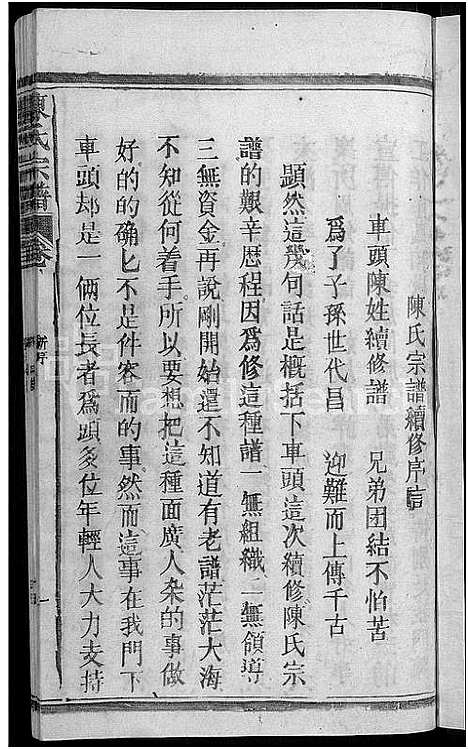 陳氏宗譜續修序言
車頭陳姓續修譜　兄弟团結不怕苦
爲了子孫世代昌　迎難而上傳千古
顯然這幾句話是概括下車頭這次續修陳氏宗
譜的艱辛歷程因爲修這種譜一無組織二無領導
三無資金再說剛開始還不知道有老譜茫茫大海
不知從何着手所以要想把這種面廣人杂的事做
好的的确匕不是件容而的事然而這事在我門下
車頭却是一倆位長者爲頭多位年輕人大力支持
陳氏宗譜
新序
一